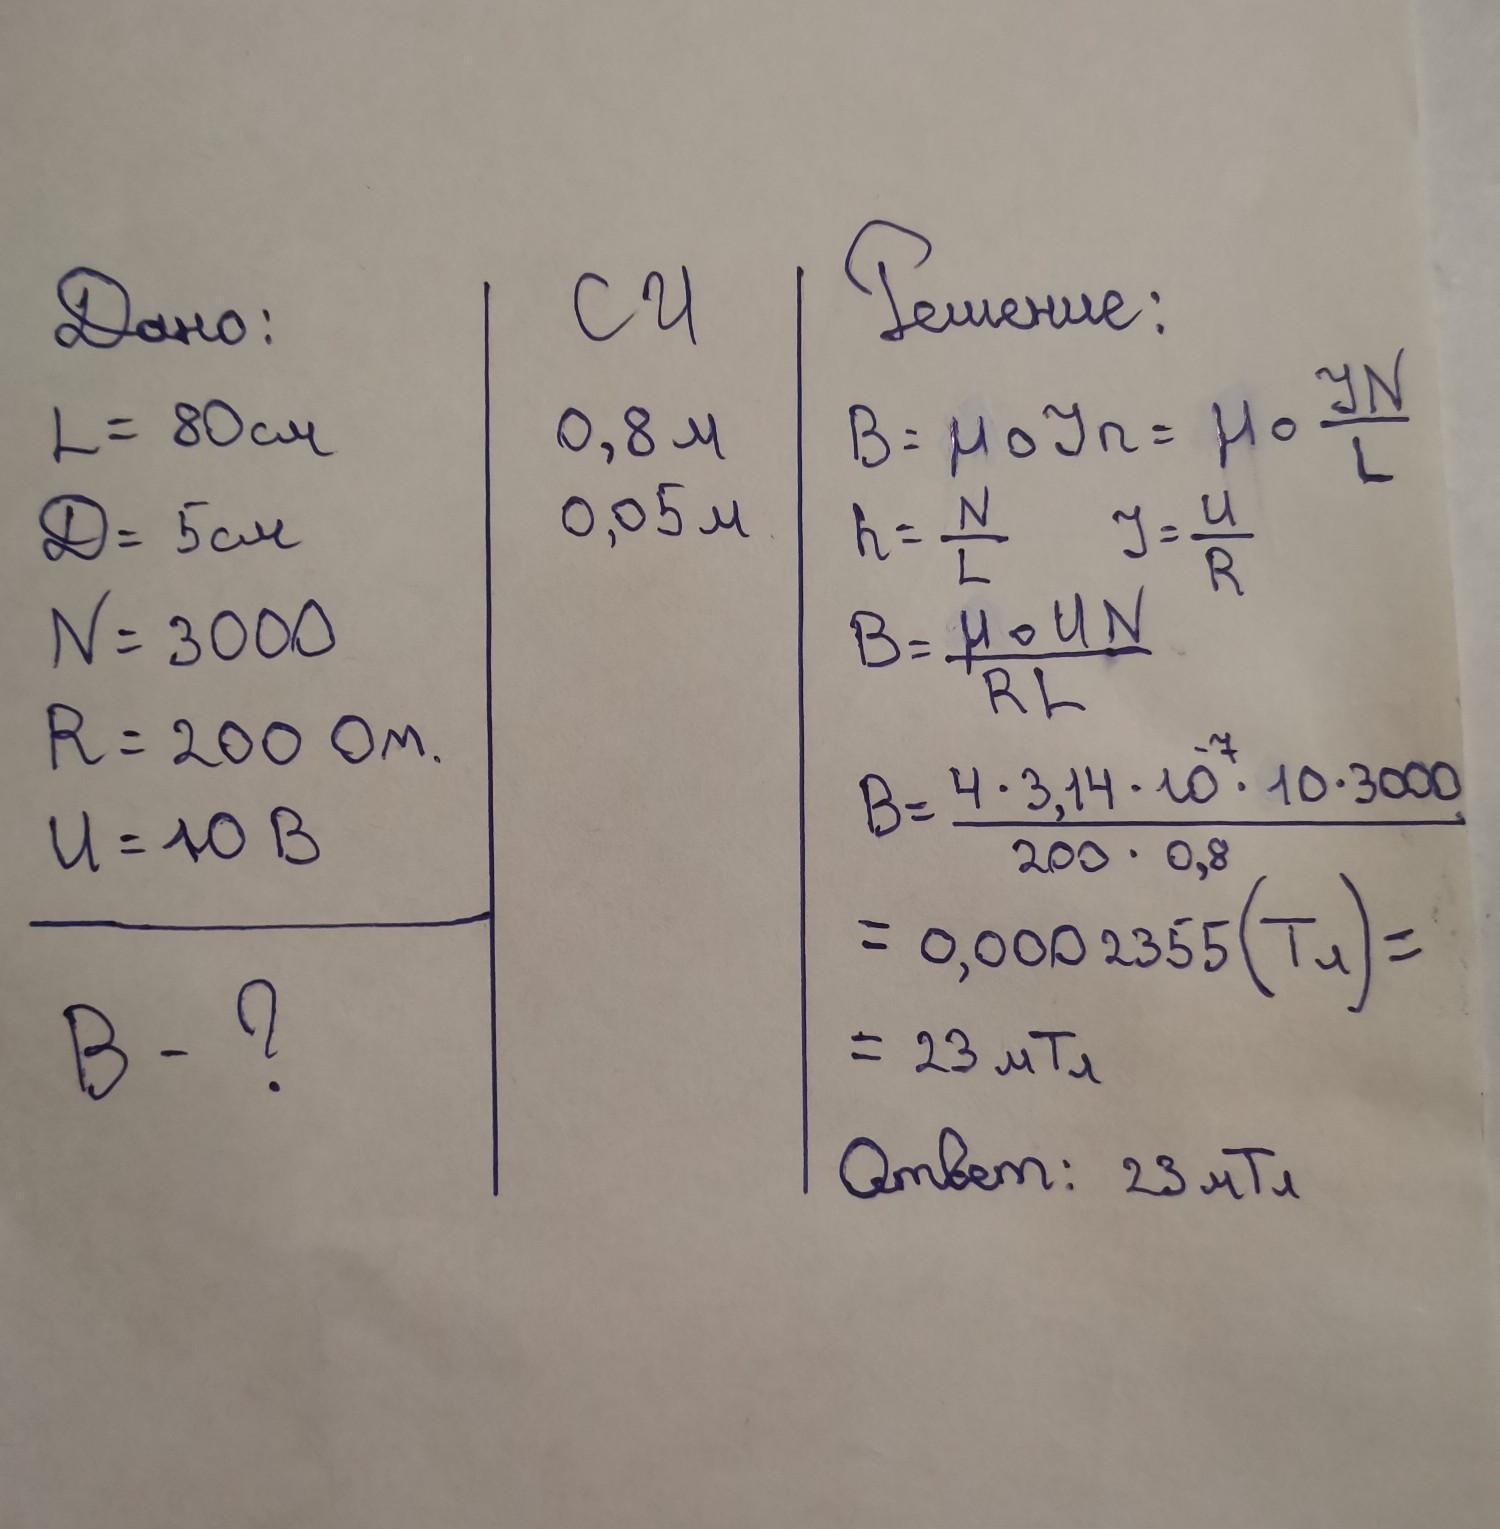 Дано:
L = 80 см
D = 5 см
N = 3000
R = 200 Ом.
U = 10 В
B - ?
СИ
0,8 м
0,05 м
Решение:
B = μ₀ J n = μ₀ JN/L
n = N/L J = U/R
B = μ₀UN/RL
B = 4 · 3,14 · 10⁻⁷ · 10 · 3000 / 200 · 0,8
= 0,0002355 (Тл) =
= 23 мТл
Ответ: 23 мТл